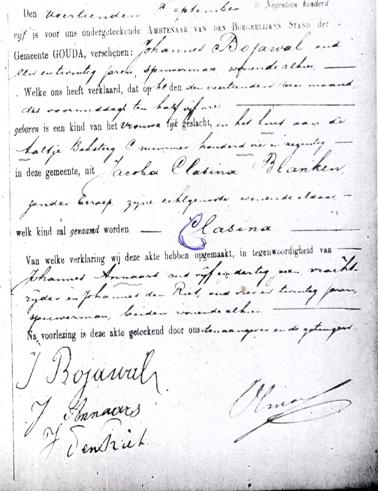 Den veertienden september Negentien honderd
vijf is voor ons ondergeteekende AMBTENAAR VAN DEN BURGERLIJKEN STAND der
Gemeente GOUDA, verschenen: Johannes Bojawal oud
jaren, spoorman wonende alhier.
Welke ons heeft verklaard, dat op den veertienden dezer maand
des voormiddags ten half vijf ure
geboren is een kind van het vrouwelijk geslacht, in het huis aan de
nummer honderd vier en negentig
in deze gemeente, uit Jacoba Clasina Blanken
zonder beroep zijne echtgenoote wonende aldaar
welk kind zal genaamd worden — Clasina
Van welke verklaring wij deze akte hebben opgemaakt, in tegenwoordigheid van
Johannes Annaars oud vijf en dertig jaren vracht
rijder en Johannes den Riet, oud vier en twintig jaren,
spoorman, beiden wonende alhier.
Na voorlezing is deze akte geteekend door ons den aangever en de getuigen.
J Bojawal
J Annaars
J den Riet